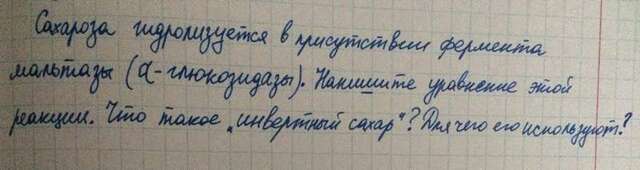 Сахароза гидролизуется в присутствии фермента
мальтазы (α-глюкозидазы). Напишите уравнение этой
реакции. Что такое „инвертный сахар"? Для чего его используют?